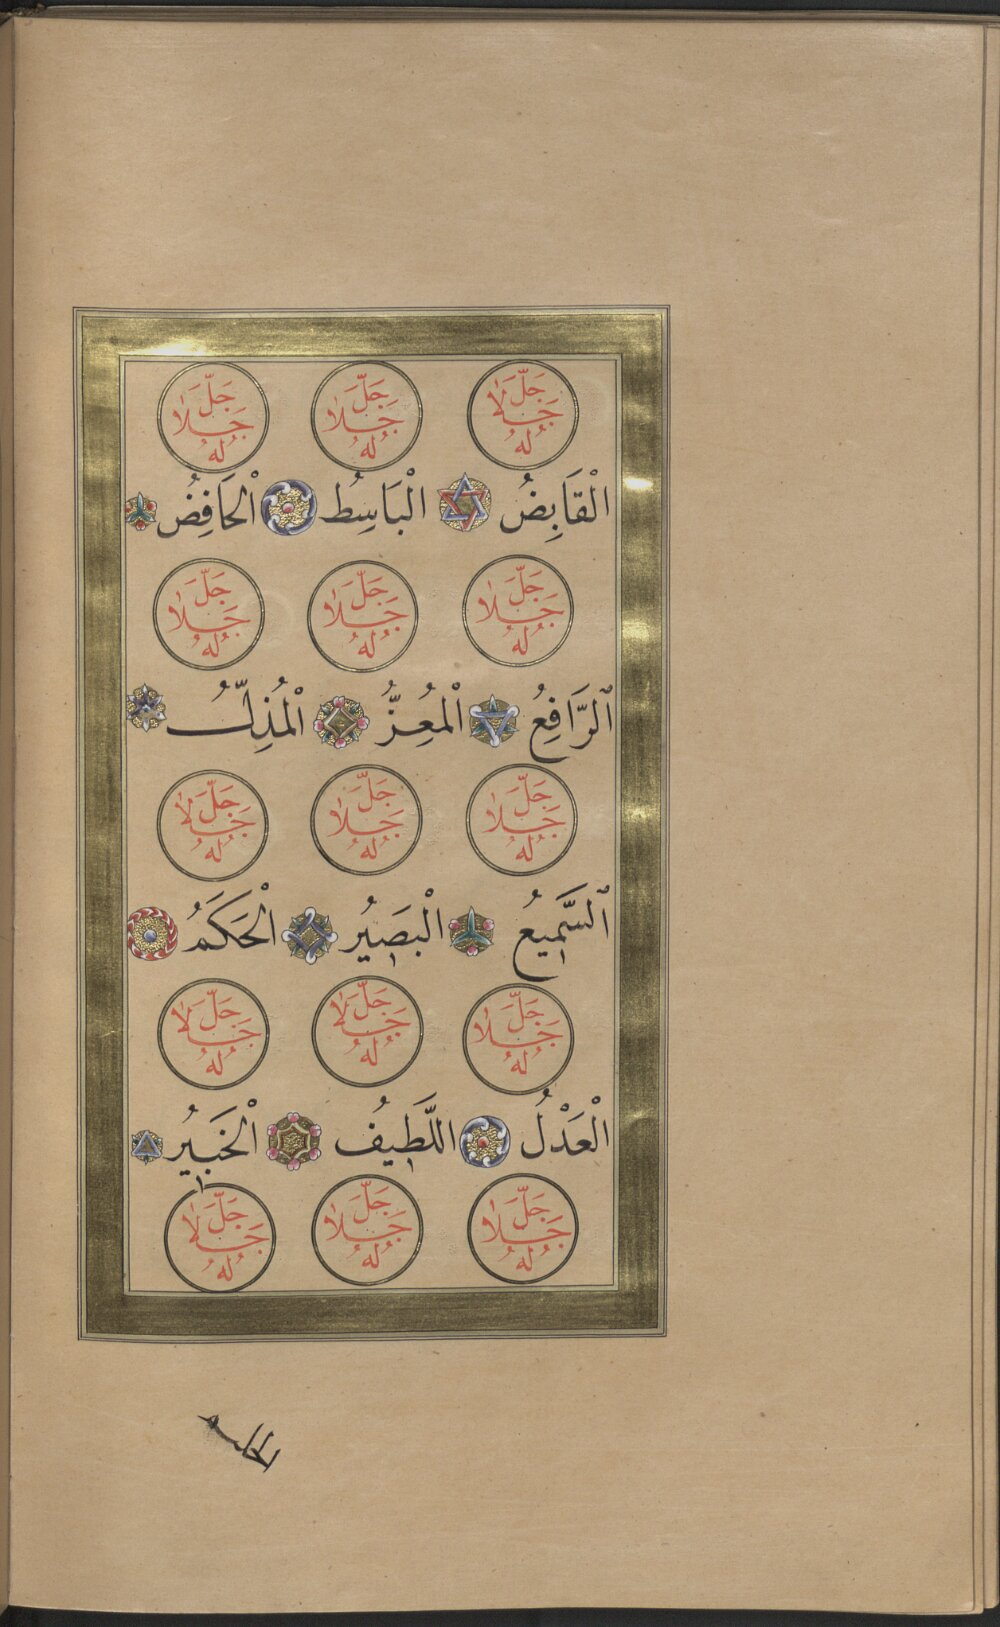 جَلَّ جَلَالُهُ جَلَّ جَلَالُهُ جَلَّ جَلَالُهُ
الْقَابِضُ الْبَاسِطُ الْخَافِضُ
جَلَّ جَلَالُهُ جَلَّ جَلَالُهُ جَلَّ جَلَالُهُ
الرَّافِعُ الْمُعِزُّ الْمُذِلُّ
جَلَّ جَلَالُهُ جَلَّ جَلَالُهُ جَلَّ جَلَالُهُ
السَّمِيعُ الْبَصِيرُ الْحَكَمُ
جَلَّ جَلَالُهُ جَلَّ جَلَالُهُ جَلَّ جَلَالُهُ
الْعَدْلُ اللَّطِيفُ الْخَبِيرُ
جَلَّ جَلَالُهُ جَلَّ جَلَالُهُ جَلَّ جَلَالُهُ
الحليم